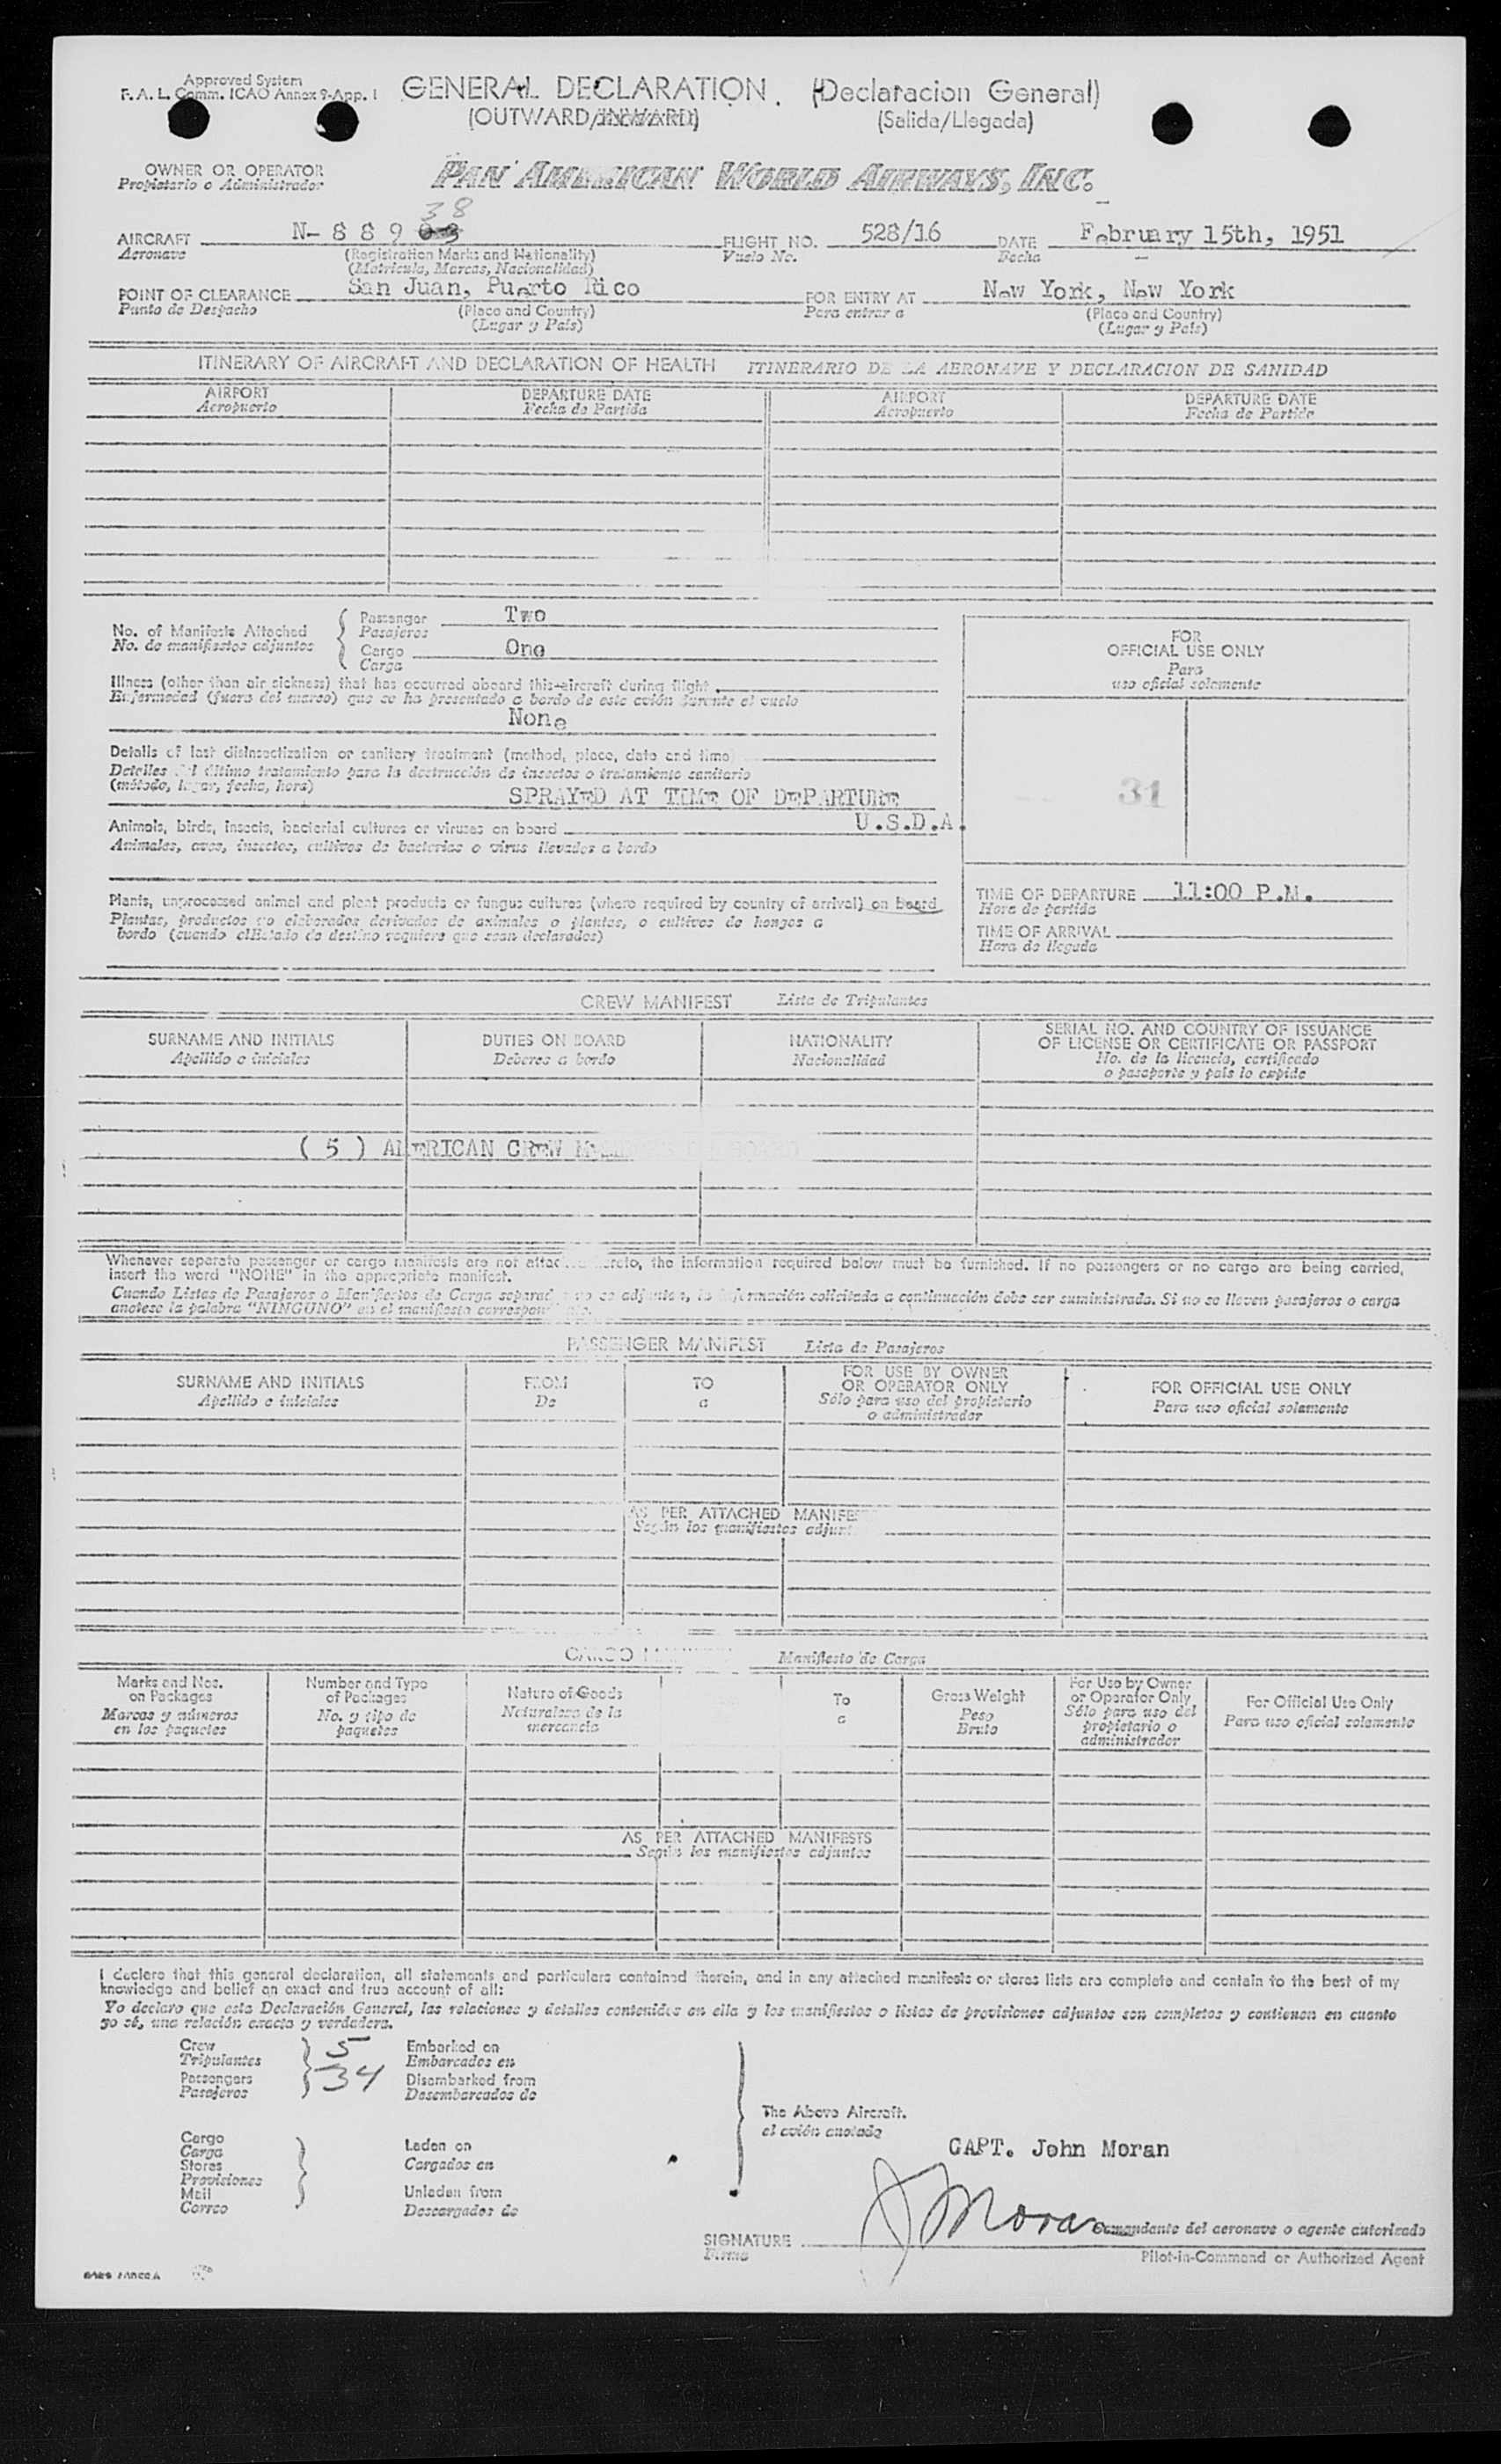 Approved System
F. A. L. Comm. ICAO Annex 9-App. I
GENERAL DECLARATION. (Declaracion General)
(OUTWARD/INWARD) (Salida/Llegada)
OWNER OR OPERATOR
Propietario o Administrador
PAN AMERICAN WORLD AIRWAYS, INC.
38
AIRCRAFT N- 8 8 9 FLIGHT NO. 528/16 DATE February 15th, 1951
Aeronave (Registration Marks and Nationality) Vuelo No. Fecha
(Matricula, Marcas, Nacionalidad)
POINT OF CLEARANCE San Juan, Puerto Rico FOR ENTRY AT New York, New York
Punto de Despacho (Place and Country) Para entrar a (Place and Country)
(Lugar y País) (Lugar y País)
ITINERARY OF AIRCRAFT AND DECLARATION OF HEALTH ITINERARIO DE LA AERONAVE Y DECLARACION DE SANIDAD
AIRPORT DEPARTURE DATE AIRPORT DEPARTURE DATE
Aeropuerto Fecha de Partida Aeropuerto Fecha de Partida
No. of Manifests Attached Passenger Two
No. de manifiestos adjuntos Pasajeros
Cargo One
Carga
FOR
OFFICIAL USE ONLY
Para
uso oficial solamente
Illness (other than air sickness) that has occurred aboard this aircraft during flight
Enfermedad (fuera del mareo) que se ha presentado a bordo de este avión durante el vuelo
None
Details of last disinsectization or sanitary treatment (method, place, date and time)
Detalles del último tratamiento para la destrucción de insectos o tratamiento sanitario
(método, lugar, fecha, hora)
SPRAYED AT TIME OF DEPARTURE
31
Animals, birds, insects, bacterial cultures or viruses on board U.S.D.A.
Animales, aves, insectos, cultivos de bacterias o virus llevados a bordo
Plants, unprocessed animal and plant products or fungus cultures (where required by country of arrival) on board
Plantas, productos no elaborados derivados de animales o plantas, o cultivos de hongos a
bordo (cuando el Estado de destino requiere que sean declarados)
TIME OF DEPARTURE 11:00 P.M.
Hora de partida
TIME OF ARRIVAL
Hora de llegada
CREW MANIFEST Lista de Tripulantes
SURNAME AND INITIALS DUTIES ON BOARD NATIONALITY SERIAL NO. AND COUNTRY OF ISSUANCE
OF LICENSE OR CERTIFICATE OR PASSPORT
Apellido e iniciales Deberes a bordo Nacionalidad No. de la licencia, certificado
o pasaporte y país lo expide
( 5 ) AMERICAN CREW
Whenever separate passenger or cargo manifests are not attached hereto, the information required below must be furnished. If no passengers or no cargo are being carried,
insert the word "NONE" in the appropriate manifest.
Cuando Listas de Pasajeros o Manifiestos de Carga separados no se adjuntan, la información solicitada a continuación debe ser suministrada. Si no se llevan pasajeros o carga
anotese la palabra "NINGUNO" en el manifiesto correspondiente.
PASSENGER MANIFEST Lista de Pasajeros
SURNAME AND INITIALS FROM TO FOR USE BY OWNER
OR OPERATOR ONLY FOR OFFICIAL USE ONLY
Apellido e iniciales De a Sólo para uso del propietario
o administrador Para uso oficial solamente
AS PER ATTACHED MANIFES
Según los manifiestos adjunt
CARGO Manifiesto de Carga
Marks and Nos.
on Packages
Marcas y números
en los paquetes
Number and Type
of Packages
No. y tipo de
paquetes
Nature of Goods
Naturaleza de la
mercancia
To
a
Gross Weight
Peso
Bruto
For Use by Owner
or Operator Only
Sólo para uso del
propietario o
administrador
For Official Use Only
Para uso oficial solamente
AS PER ATTACHED MANIFESTS
Según los manifiestos adjuntos
I declare that this general declaration, all statements and particulars contained therein, and in any attached manifests or stores lists are complete and contain to the best of my
knowledge and belief an exact and true account of all:
Yo declaro que esta Declaración General, las relaciones y detalles contenidos en ella y los manifiestos o listas de provisiones adjuntos son completos y contienen en cuanto
yo sé, una relación exacta y verdadera.
Crew 5 Embarked on
Tripulantes Embarcados en
Passengers 34 Disembarked from
Pasajeros Desembarcados de
The Above Aircraft.
el avión anotado
Cargo
Carga Laden on
Stores Cargados en
Provisiones
Mail Unladen from
Correo Descargados de
CAPT. John Moran
SIGNATURE J Moran Comandante del aeronave o agente autorizado
Firma Pilot-in-Command or Authorized Agent